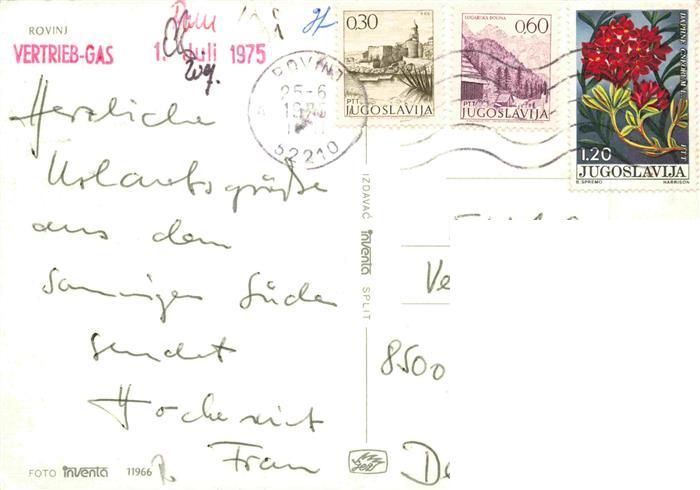 ROVINJ
VERTRIEB-GAS 1. Juli 1975
0.30
PTT JUGOSLAVIJA
LOGARSKA DOLINA
0.60
PTT JUGOSLAVIJA
1.20 PTT
JUGOSLAVIJA
B. SPREMO HARRISON
ROVINJ
25-6
52210
Herzliche
Urlaubsgrüße
aus dem
sonnigen Süden
sendet
u. Frau
IZDAVAČ inventa SPLIT
8500
FOTO inventa 11966